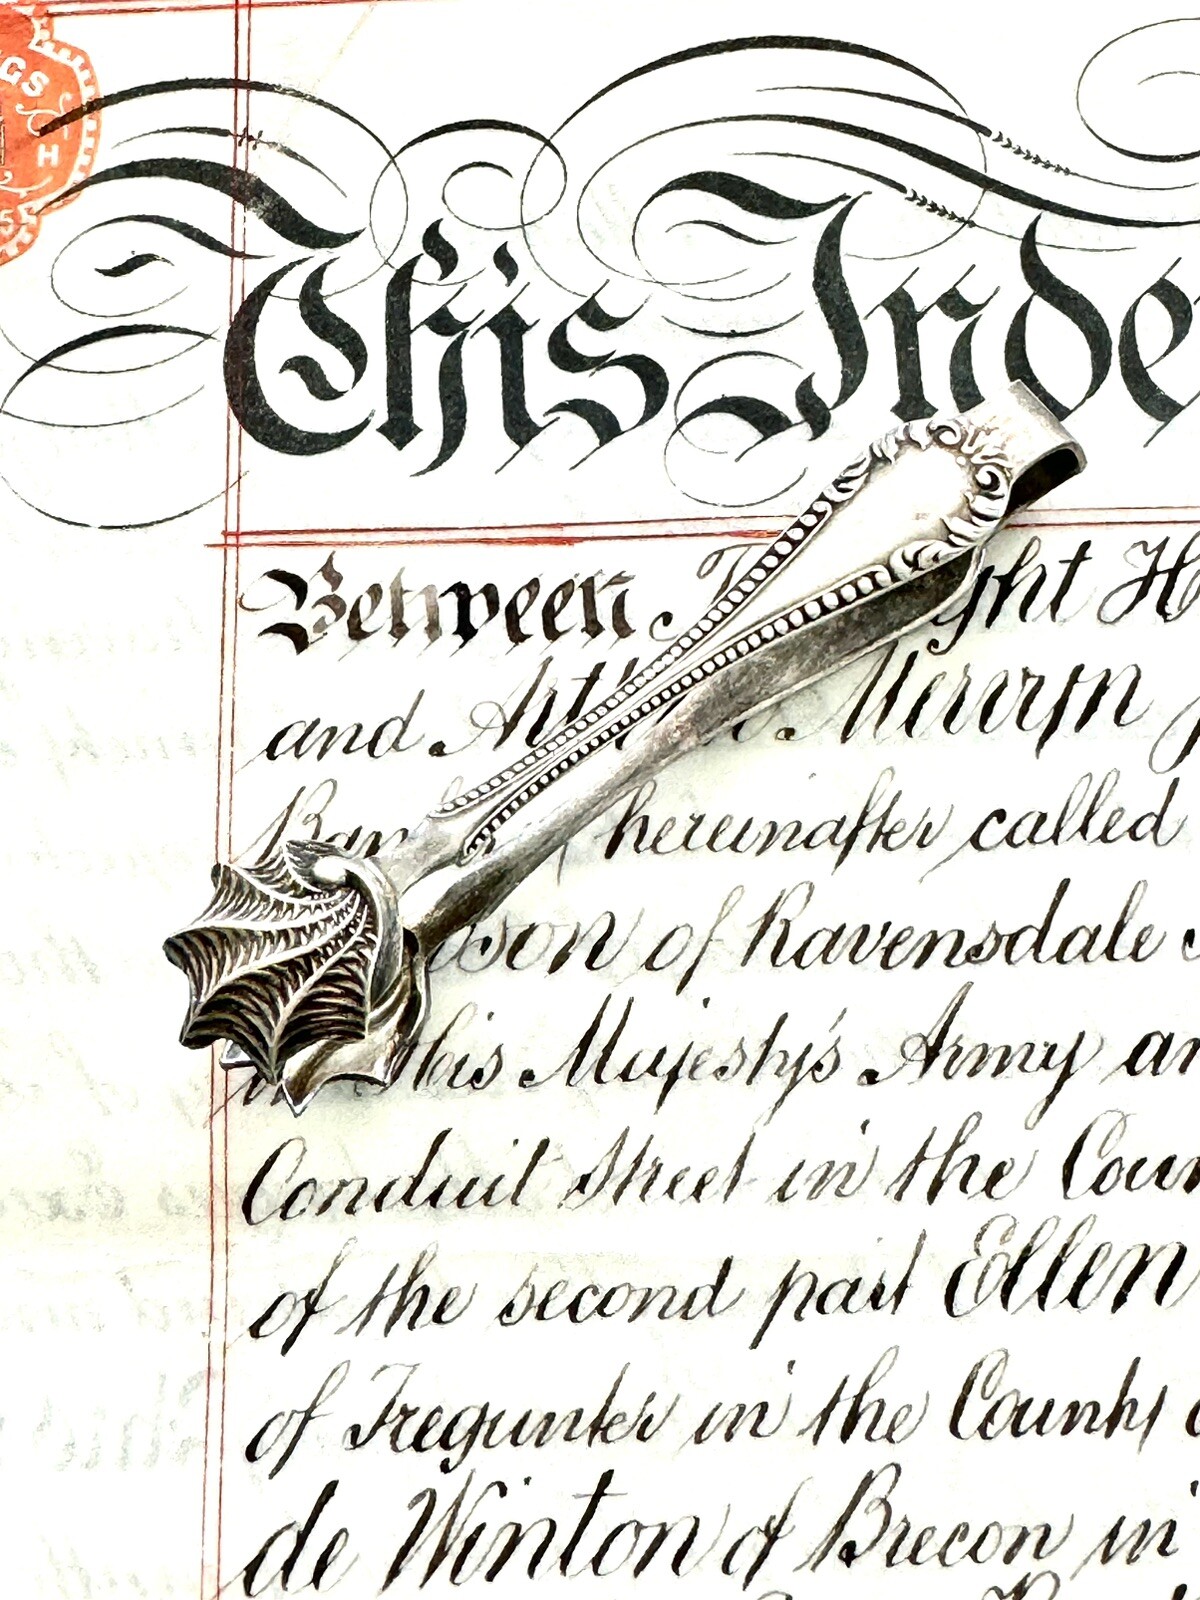 GS
H
5
This Inde
Between ght H
and Mervyn
hereinafter called
son of Ravensdale
His Majesty's Army an
Conduit Street in the Coun
of the second part Ellen
of Tregunter in the County
de Winton of Brecon in